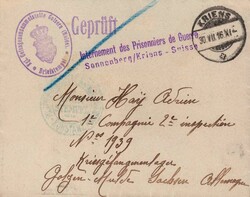 Geprüft
Internement des Prisonniers de Guerre
Sonnenberg/Kriens - Suisse
KRIENS
30.VII.16.XI
Briefstempel
Monsieur Haÿ Adrien
1re Compagnie 2me inspection
No 1939
Kriegsgefangenenlager
Golzern-Mulde Sachsen Allemagne